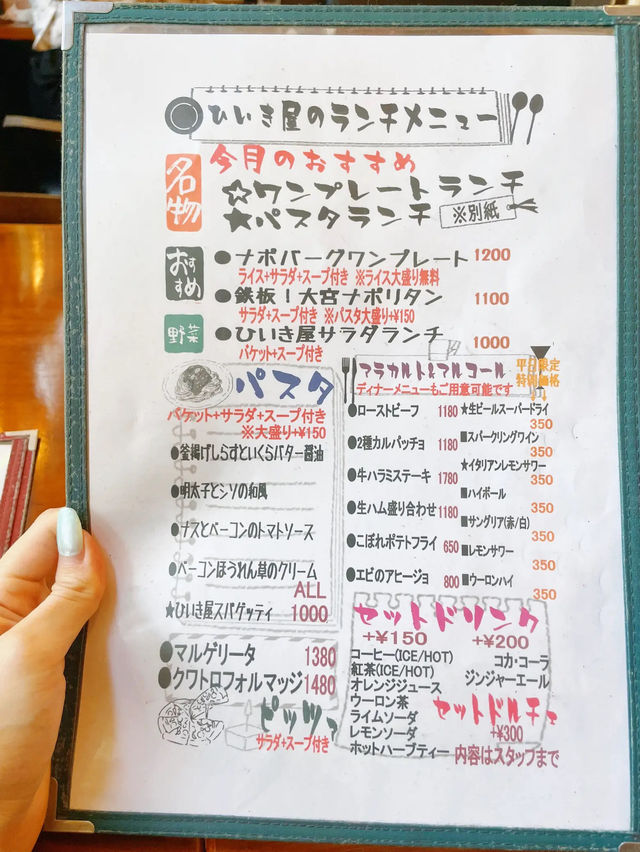 ひいき屋のランチメニュー
名物
今月のおすすめ
☆ワンプレートランチ
★パスタランチ ※別紙
おすすめ
●ナポバーグワンプレート 1200
ライス+サラダ+スープ付き ※ライス大盛り無料
●鉄板!大宮ナポリタン 1100
サラダ+スープ付き ※パスタ大盛り+¥150
野菜
●ひいき屋サラダランチ 1000
バケット+スープ付き
パスタ
バケット+サラダ+スープ付き
※大盛り+¥150
●釜揚げしらすといくらバター醤油
●明太子とシソの和風
●ナスとベーコンのトマトソース
●ベーコンほうれん草のクリーム
ALL
★ひいき屋スパゲッティ 1000
●マルゲリータ 1380
●クワトロフォルマッジ 1480
ピッツァ
サラダ+スープ付き
アラカルト&アルコール
ディナーメニューもご用意可能です
平日限定
特別価格
↓↓
●ローストビーフ 1180
●2種カルパッチョ 1180
●牛ハラミステーキ 1780
●生ハム盛り合わせ 1180
●こぼれポテトフライ 650
●エビのアヒージョ 800
★生ビールスーパードライ
350
■スパークリングワイン
350
★イタリアンレモンサワー
350
■ハイボール
350
■サングリア(赤/白)
350
■レモンサワー
350
■ウーロンハイ
350
セットドリンク
+¥150
コーヒー(ICE/HOT)
紅茶(ICE/HOT)
オレンジジュース
ウーロン茶
ライムソーダ
レモンソーダ
ホットハーブティー
+¥200
コカ・コーラ
ジンジャーエール
セットドルチェ
+¥300
内容はスタッフまで